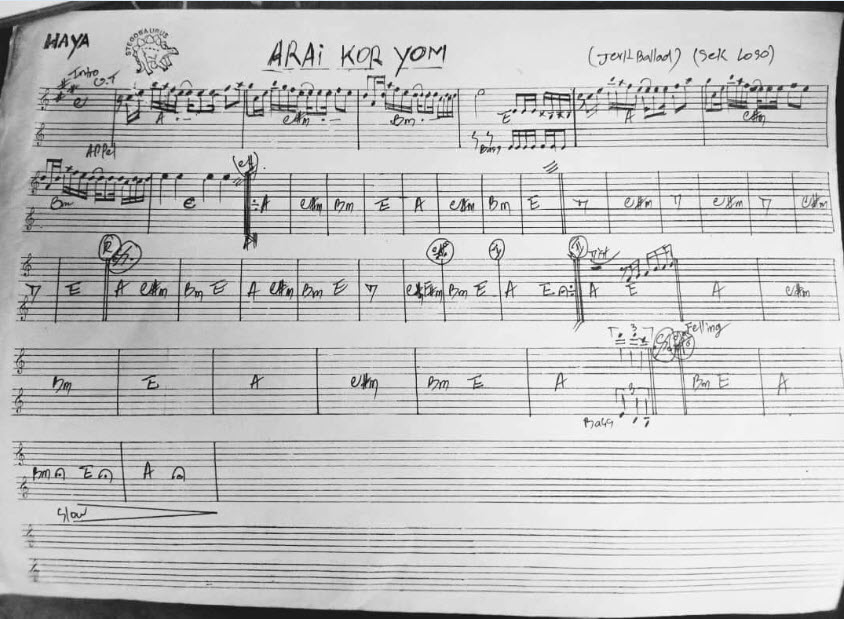 HAYA
STEGOSAURUS
ARAi KOR YOM
(Sek Loso)
Intro
A C#m Bm E A C#m
Bass
Bm E
A C#m Bm E A C#m Bm E C#m C#m
E A C#m Bm E A C#m Bm E Bm E A E A E A C#m
Felling
Bm E A C#m Bm E A Bm E A
3
Bass
Bm E A
Slow